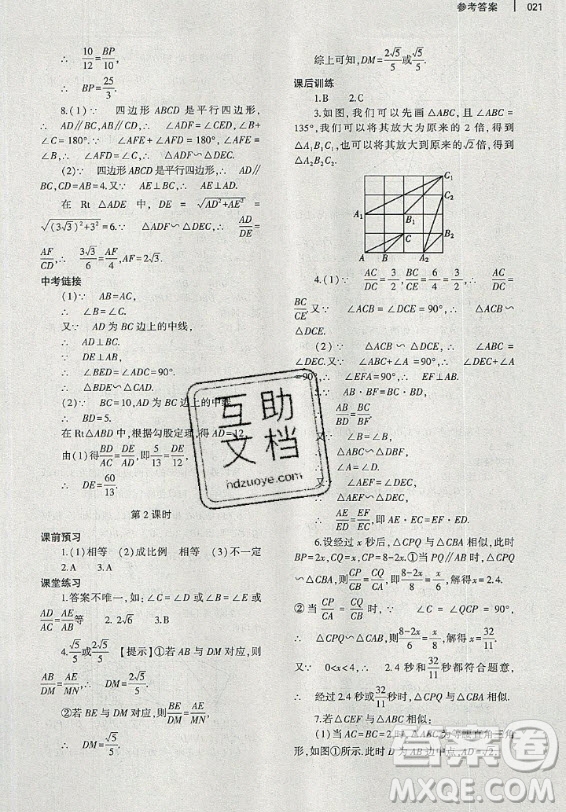 参考答案 021
∴ 10/12=BP/10.
∴ BP=25/3.
8.(1)∵ 四边形 ABCD 是平行四边形,
∴ AD∥BC,AB∥CD,∴ ∠ADF=∠CED,∠B+
∠C=180°.∵ ∠AFE+∠AFD=180°,∠AFE=
∠B,∴ ∠AFD=∠C.∴ △ADF∽△DEC.
(2)∵ 四边形ABCD是平行四边形,
∴ AD∥BC,CD=AB=4.又∵ AE⊥BC,∴ AE⊥AD.
在 Rt △ADE 中,DE=√AD²+AE²=
√(3√3)²+3²=6.∵ △ADF∽△DEC,∴ AD/DE=
AF/CD,∴ 3√3/6=AF/4,AF=2√3.
中考链接
(1)∵ AB=AC,
∴ ∠B=∠C.
又∵ AD 为 BC 边上的中线,
∴ AD⊥BC.
∵ DE⊥AB,
∴ ∠BED=∠ADC=90°.
∴ △BDE∽△CAD.
(2)∵ BC=10,AD 为 BC 边上的中线,
∴ BD=5.
在 Rt△ABD 中,根据勾股定理,得 AD=12.
由(1)得 BD/AC=DE/AD,即 5/13=DE/12,
∴ DE=60/13.
第 2 课时
课前预习
1.(1)相等 (2)成比例 相等 (3)不一定
2.A 3.A
课堂练习
1.答案不唯一,如:∠C=∠E 或∠B=∠D 或
AD/AE 2.2√6 3.B
4.√5/5或2√5/5 【提示】①若 AB 与 DM 对应,则
AB/DM=AE/MN,∴ DM=2√5/5.
②若 BE 与 DM 对应,则 BE/DM=AE/MN,
∴ DM=√5/5.
综上可知,DM=2√5/5或√5/5.
课后训练
1.B 2.C
3.如图,我们可以先画△ABC,且∠ABC=
135°,我们可以将其放大为原来的 2 倍,得到
△A₁B₁C₁,也可以将其放大为原来的 倍,得到
△A₂B₂C₂.
C₁
C₂
A₁ B₁
C B₂
A B A₂
4.(1)∵ AC/DC=3/2,BC/CE=6/4=3/2,∴ AC/DC=
BC/CE.又∵ ∠ACB=∠DCE=90°,∴ △ACB∽
△DCE.
(2)∵ △ACB∽△DCE,∴ ∠ABC=
又∵ ∠ABC+∠A=90°,
=90°.∴ ∠EFA=90°.∴ EF⊥AB.
AB·BF=BC·BD,
∴ AB/BD=BC/BF.
△DBF.
AE/BE=
即 AE·EC=EF·ED.
6.设经过 x 秒后,△CPQ 与△CBA 相似,此时
BP=2x,CQ=x.①当PQ∥AB时,△CPQ∽△CBA,
则CP/CB=CQ/CA,即8-2x/8=x/6,解得 x=2.4.
②当CP/CA=CQ/CB时,∵ ∠C=∠QCP=90°,
∴ △CPQ∽△CAB,∴ 8-2x/6=x/8,解得 x=32/11.
又∵ 0<x<4,∴ 2.4 秒和32/11秒都符合题意,
∴ 经过 2.4 秒或32/11秒,△CPQ 与△CBA 相似.
7.若△CEF 与△ABC 相似:
(1)当 AC=BC=2 时,△ABC为等腰直角三角
形,如图①所示.此时 D 为 AB边中点,AD=√2.
互助文档
hdzuoye.com
答案圈
MXQE.COM